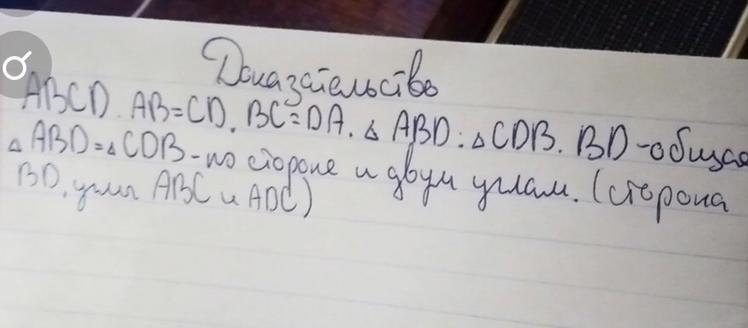 Доказательство
ABCD. AB=CD. BC=DA. △ ABD: △ CDB. BD-общая
△ ABD=△ CDB-по стороне и двум углам. (сторона
BD, углы ABC и ADC)